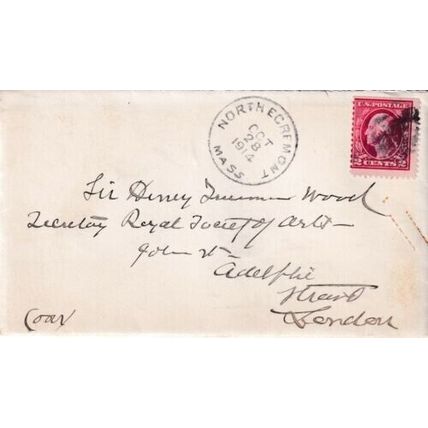 NORTH EGREMONT
OCT
28
1914
MASS
U.S. POSTAGE
2 CENTS 2
Sir Henry Trueman Wood
Secretary Royal Society of Arts
John St
Adelphi
Strand
London